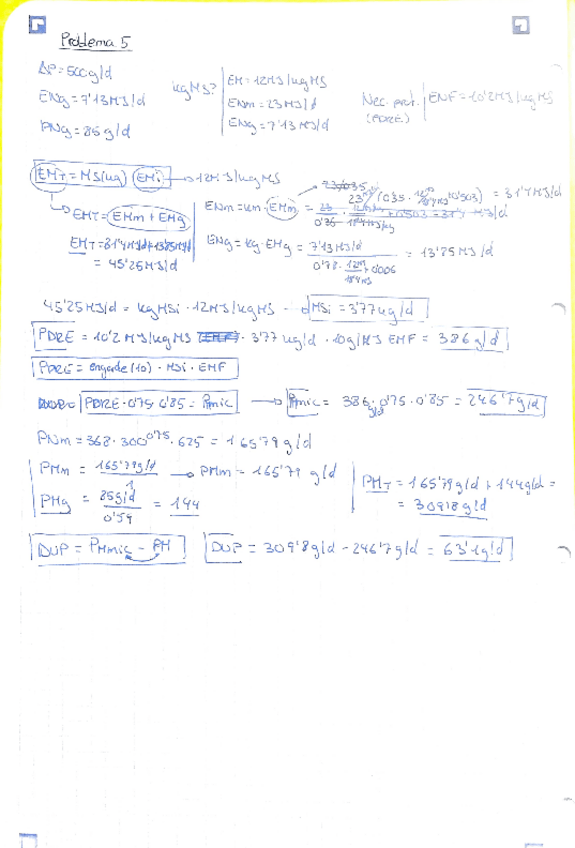 Problema 5
ΔP = 500 g/d
ENg = 7'13 MJ/d
PNg = 85 g/d
kg MS?
EM = 12 MJ/kg MS
ENm = 23 MJ/d
ENg = 7'13 MJ/d
Nec. prot. (PDRE)
ENF = 10'2 MJ/kg MS
EMT = MS(kg) EMi → 12 MJ/kg MS
→ EMT = EMm + EMg
EMT = 31'4 MJ/d + 13'85 MJ/d
= 45'25 MJ/d
ENm = km · EMm = 23 MJ/d / (0'35 · 12/18'4 + 0'503) = 31'4 MJ/d
ENg = kg · EMg = 7'13 MJ/d / 0'78 · 12 MJ/18'4 MJ + 0'006 = 13'85 MJ/d
45'25 MJ/d = kg MSi · 12 MJ/kg MS → MSi = 3'77 kg/d
PDRE = 10'2 MJ/kg MS · 3'77 kg/d · 10 g/MJ EMF = 386 g/d
PDRE = engorde (10) · MSi · EMF
PDRE · 0'75 · 0'85 = Pmic → Pmic = 386 g/d · 0'75 · 0'85 = 246'7 g/d
PNm = 368 · 300^0'75 · 6'25 = 165'79 g/d
PMm = 165'79 g/d / 1 → PMm = 165'79 g/d
PMg = 85 g/d / 0'59 = 144
PMT = 165'79 g/d + 144 g/d =
= 309'8 g/d
DUP = PMmic - PM
DUP = 309'8 g/d - 246'7 g/d = 63'1 g/d